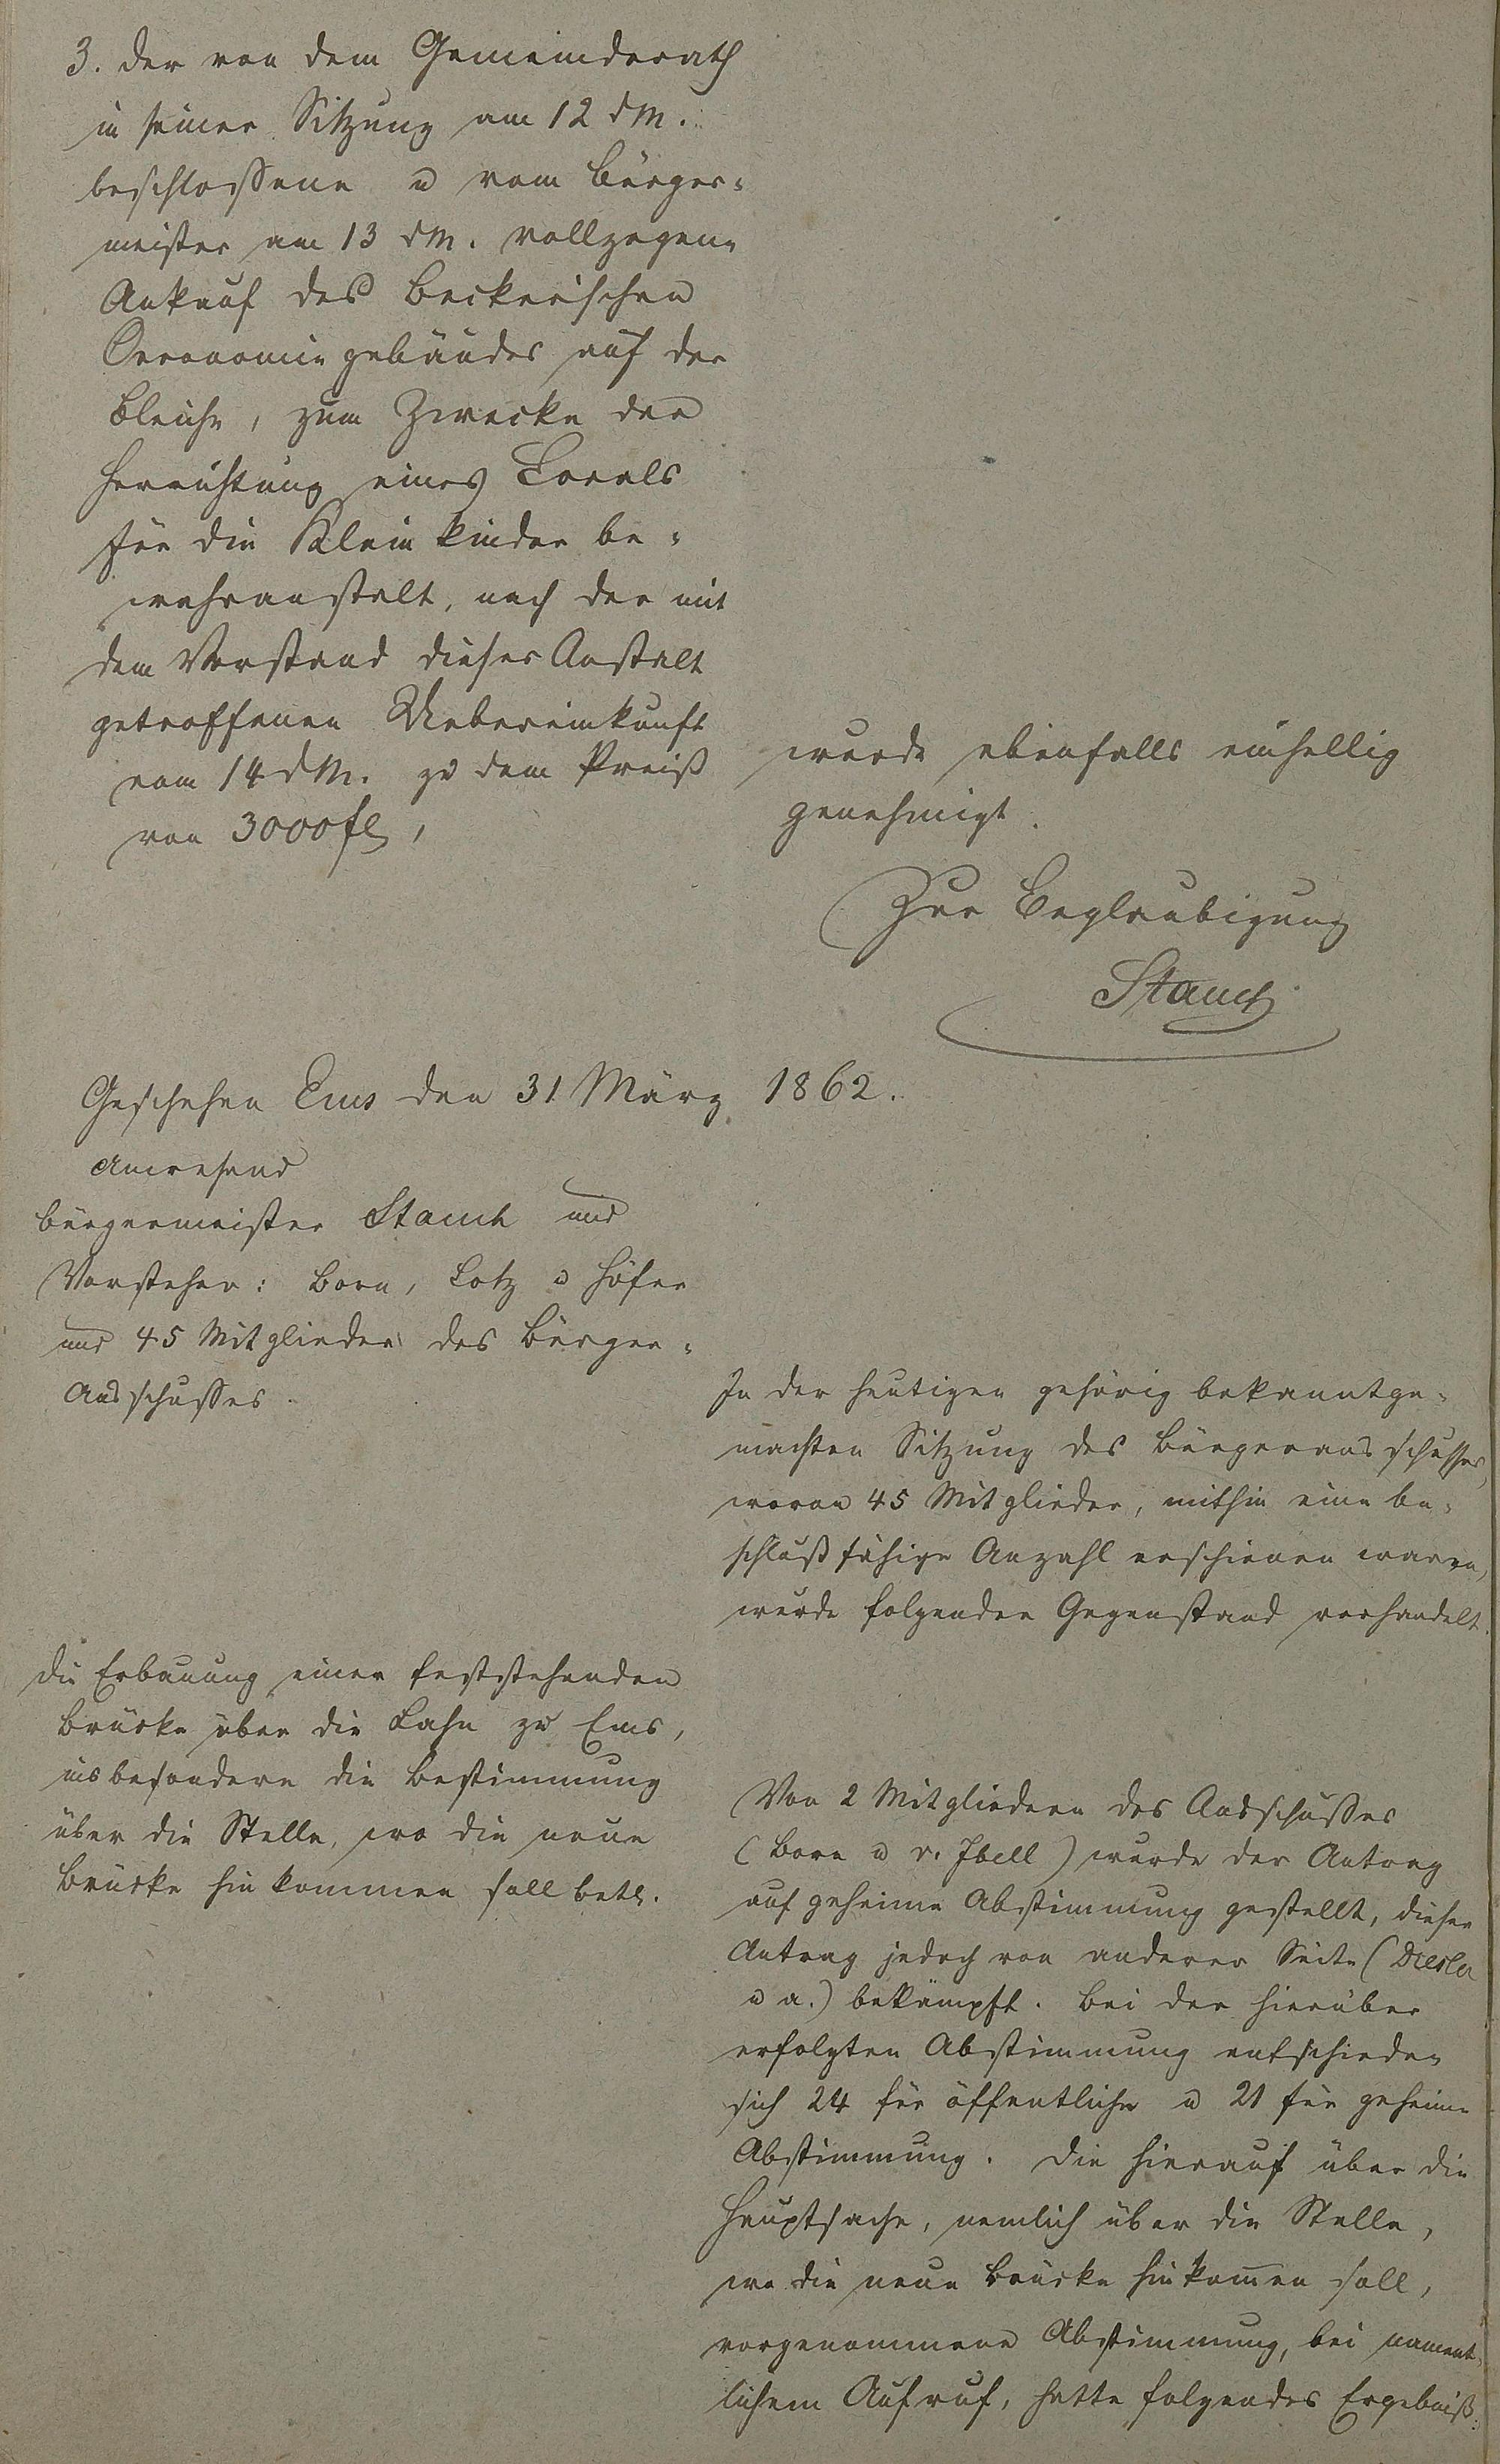 3. der von dem Gemeinderath
in seiner Sitzung am 12 dM.
beschlossene u vom Bürger-
meister am 13 dM. vollzogene
Ankauf des Beckerischen
Oeconomiegebäudes auf der
Bleiche, zum Zwecke der
Herrichtung eines Locals
für die Kleinkinderbe-
wahranstalt, nach der mit
dem Vorstand dieser Anstalt
getroffenen Uebereinkunft
vom 14 dM. zu dem Preiß
von 3000 fl,
wurde ebenfalls einhellig
genehmigt.
Zur Beglaubigung
Stauch
Geschehen Ems den 31 März 1862.
Anwesend
Bürgermeister Stauch und
Vorsteher: Born, Lotz u Höfer
und 45 Mitglieder des Bürger-
Ausschusses.
In der heutigen gehörig bekanntge-
machten Sitzung des Bürgerausschusses,
wovon 45 Mitglieder, mithin eine be-
schlußfähige Anzahl erschienen waren,
wurde folgender Gegenstand verhandelt.
Die Erbauung einer feststehenden
Brücke über die Lahn zu Ems,
insbesondere die Bestimmung
über die Stelle, wo die neue
Brücke hinkommen soll betr.
Von 2 Mitgliedern des Ausschusses
(Born u v. Ibell) wurde der Antrag
auf geheime Abstimmung gestellt, dieser
Antrag jedoch von anderer Seite (
u a.) bekämpft. Bei der hierüber
erfolgten Abstimmung entschieden
sich 24 für öffentliche u 21 für geheime
Abstimmung. Die hierauf über die
Hauptsache, nemlich über die Stelle,
wo die neue Brücke hinkom̅en soll,
vorgenommene Abstimmung, bei nament-
lichem Aufruf, hatte folgendes Ergebniß: